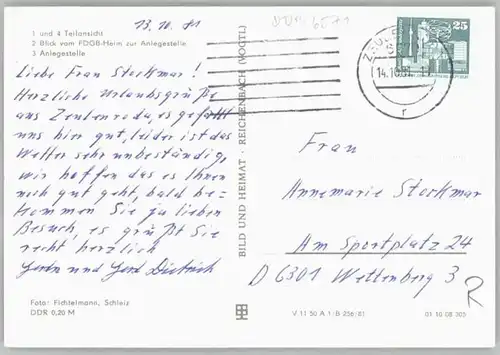 13.10.81
1 und 4 Teilansicht
2 Blick vom FDGB-Heim zur Anlegestelle
3 Anlegestelle
Liebe Frau Stockmar!
Herzliche Urlaubsgrüße
aus Zeulenroda, es gefällt
uns hier gut, leider ist das
Wetter sehr unbeständig,
wir hoffen das es Ihnen
noch gut geht, bald be-
kommen Sie ja lieben
Besuch, es grüßt Sie
recht herzlich
und Gerd Dietrich
Foto: Fichtelmann, Schleiz
DDR 0,20 M
BILD UND HEIMAT · REICHENBACH (VOGTL)
25
14.10.81
r
Frau
Annemarie Stockmar
Am Sportplatz 24
D 6301 Wettenberg 3
V 11 50 A 1/B 256/81
01 10 08 305